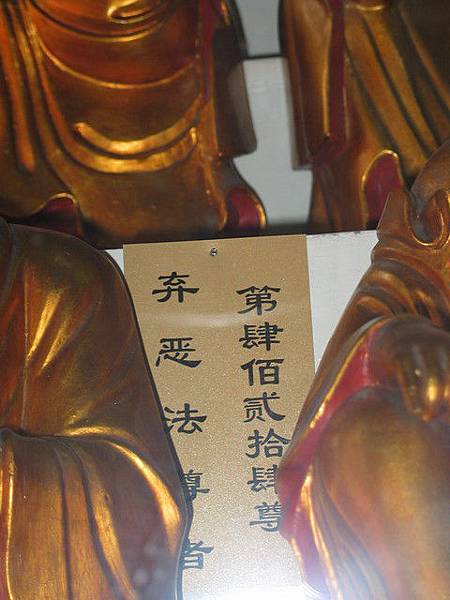 第肆佰贰拾肆尊
弃恶法尊者